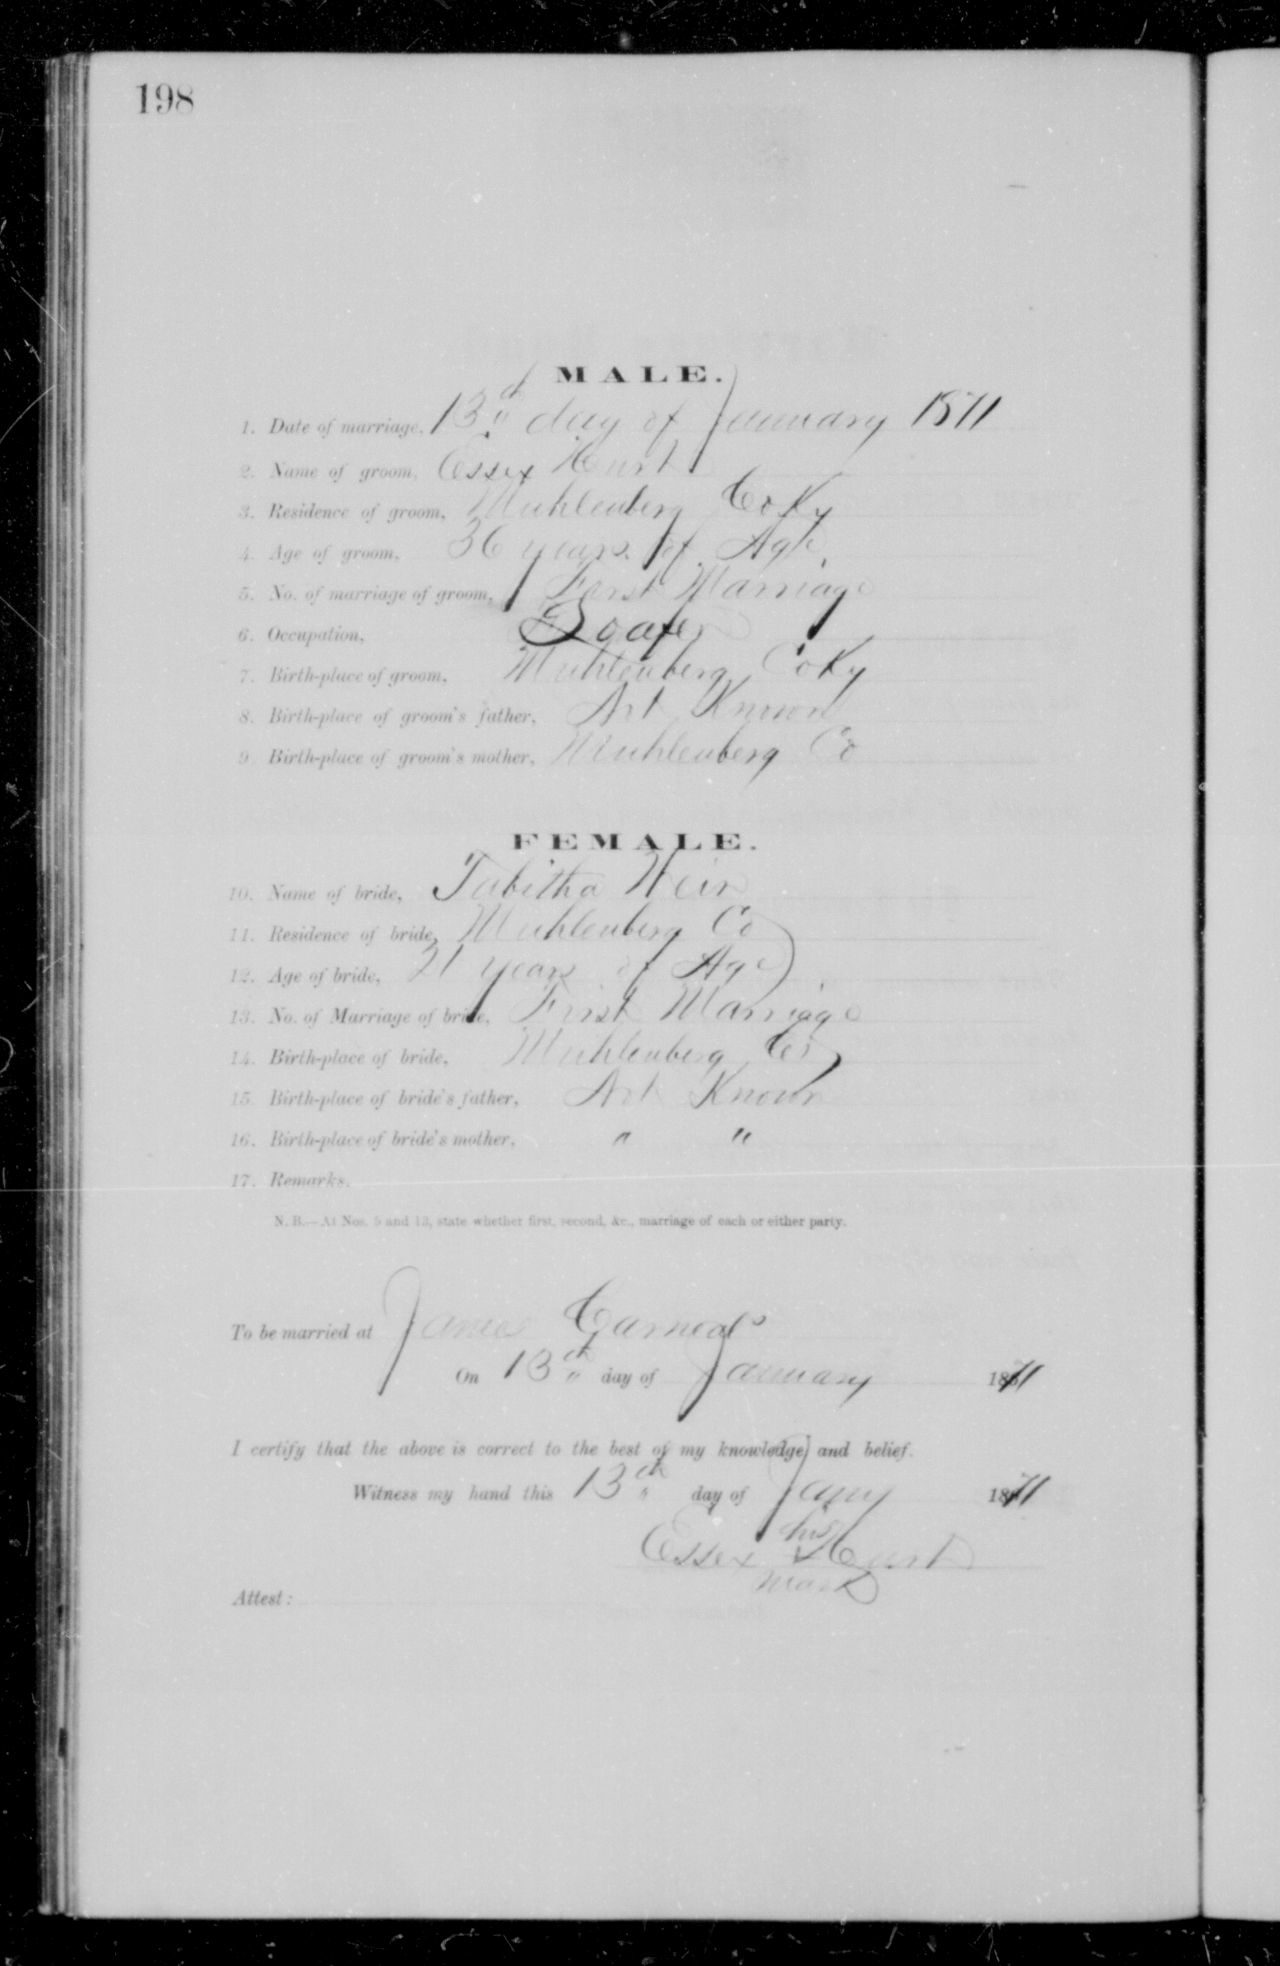 198
MALE.
1. Date of marriage, 13th day of January 1871
2. Name of groom, Essex
3. Residence of groom, Muhlenberg Co Ky
4. Age of groom, 36 years of Age
5. No. of marriage of groom, First Marriage
6. Occupation,
7. Birth-place of groom, Muhlenberg Co Ky
8. Birth-place of groom's father, Not Known
9. Birth-place of groom's mother, Muhlenberg Co
FEMALE.
10. Name of bride, Tabitha Weir
11. Residence of bride, Muhlenberg Co
12. Age of bride, 21 years of Age
13. No. of Marriage of bride, First Marriage
14. Birth-place of bride, Muhlenberg Co
15. Birth-place of bride's father, Not Known
16. Birth-place of bride's mother, " "
17. Remarks.
N. B.—At Nos. 5 and 13, state whether first, second, &c., marriage of each or either party.
To be married at
On 13th day of January 1871
I certify that the above is correct to the best of my knowledge and belief.
Witness my hand this 13th day of Jany 1871
his
Essex x
mark
Attest: